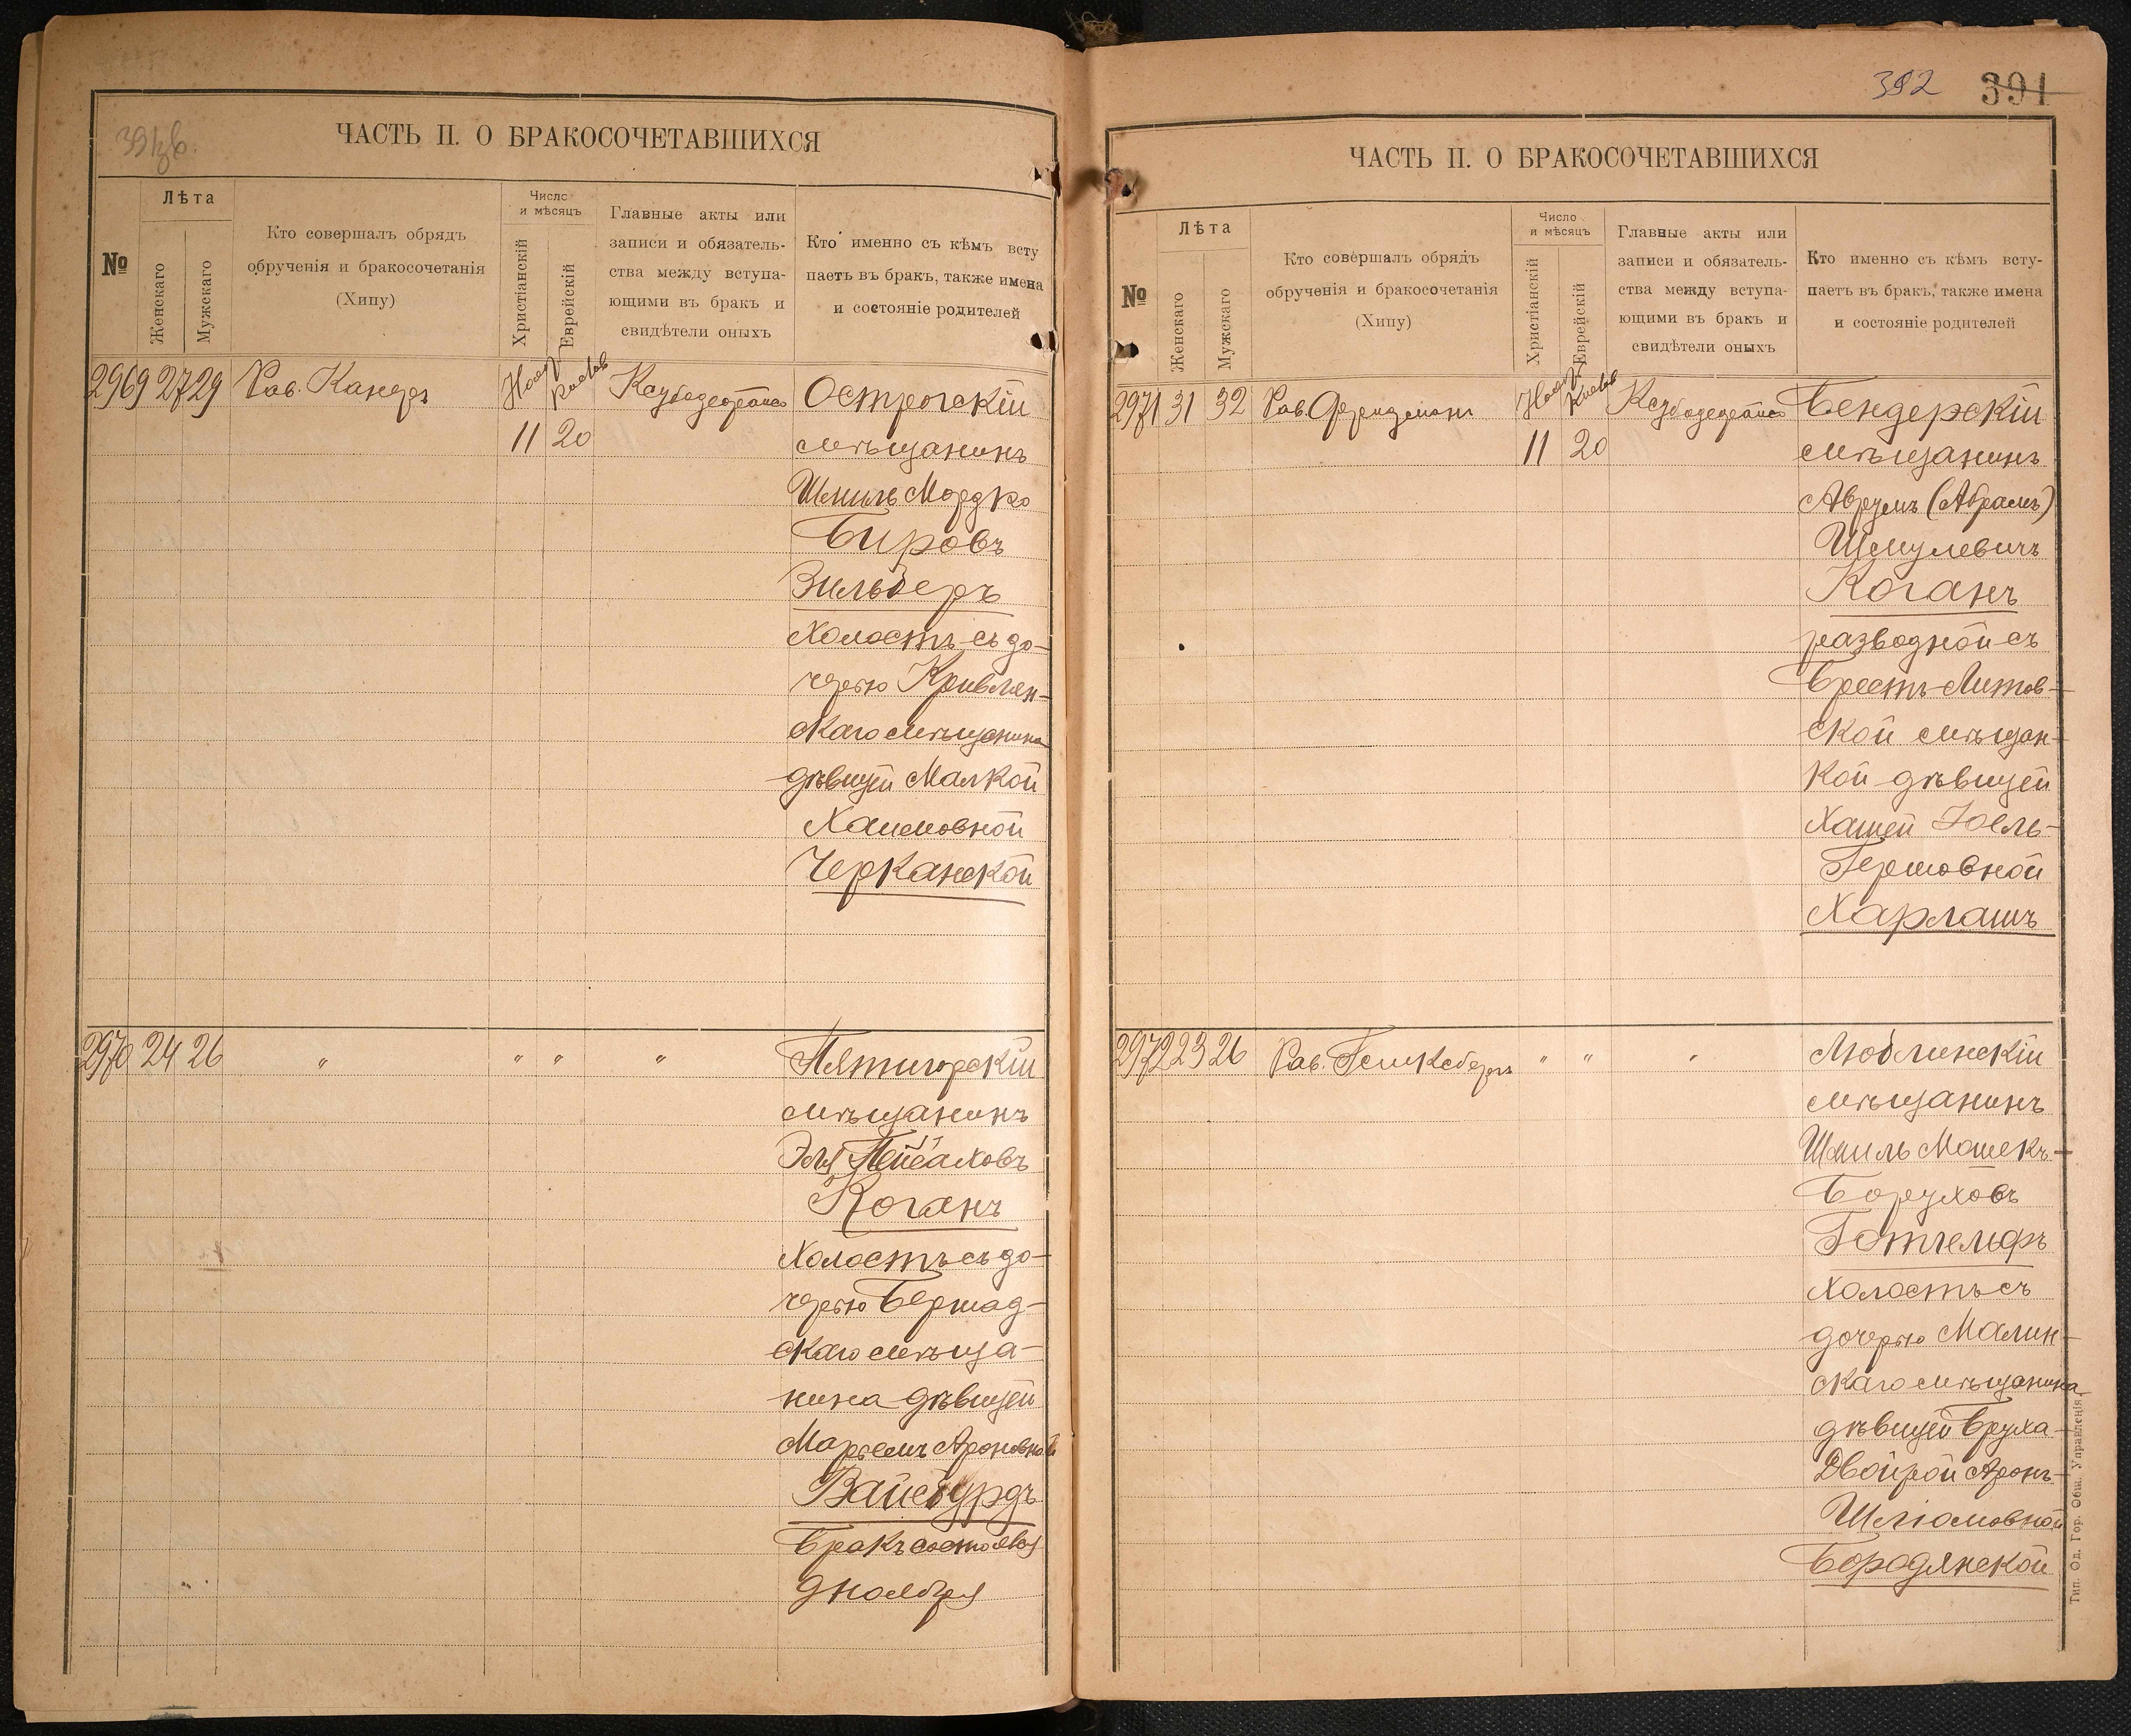 391об.
ЧАСТЬ II. О БРАКОСОЧЕТАВШИХСЯ
№
Лѣта
Женскаго
Мужскаго
Кто совершалъ обрядъ
обрученія и бракосочетанія
(Хипу)
Число
и мѣсяцъ
Христіанскій
Еврейскій
Главные акты или
записи и обязатель-
ства между вступа-
ющими въ бракъ и
свидѣтели оныхъ
Кто именно съ кѣмъ всту
паетъ въ бракъ, также имена
и состояніе родителей
2969 27 29 Рав. Канеръ Нояб. Кислев
11 20
Острогскій
мѣщанинъ
Шмиль Мордко
Бировъ
Зильберъ
Холостъ съ до-
черью Кривлян-
скаго мѣщанина
дѣвицей Малкой
Хаимовной
Черканской
2970 24 26 " " " "
Пятигорскій
мѣщанинъ
Эля Пейсаховъ
Коганъ
Холостъ съ до-
черью Бершад-
скаго мѣща-
нина дѣвицей
Марьемъ Ароновной
Вайсбурдъ
Бракъ состоялся
9 ноября
392 391
ЧАСТЬ II. О БРАКОСОЧЕТАВШИХСЯ
№
Лѣта
Женскаго
Мужскаго
Кто совершалъ обрядъ
обрученія и бракосочетанія
(Хипу)
Число
и мѣсяцъ
Христіанскій
Еврейскій
Главные акты или
записи и обязатель-
ства между вступа-
ющими въ бракъ и
свидѣтели оныхъ
Кто именно съ кѣмъ всту-
паетъ въ бракъ, также имена
и состояніе родителей
2971 31 32 Рав. Фридманъ Нояб. Кислев
11 20
Бендерскій
мѣщанинъ
Аврумъ (Абрамъ)
Шмулевичъ
Коганъ
разводной съ
Брестъ-Литов-
ской мѣщан-
кой дѣвицей
Хашей Іоель-
Гершовной
Харлашъ
2972 23 26 Рав. " " "
Люблинскій
мѣщанинъ
Шмиль Мошекъ-
Боруховъ
Готгельфъ
Холостъ съ
дочерью Малин-
скаго мѣщанина
дѣвицей Бруха-
Двойрой Аронъ-
Шліомовной
Бородянской
Тип. Од. Гор. Общ. Управленія